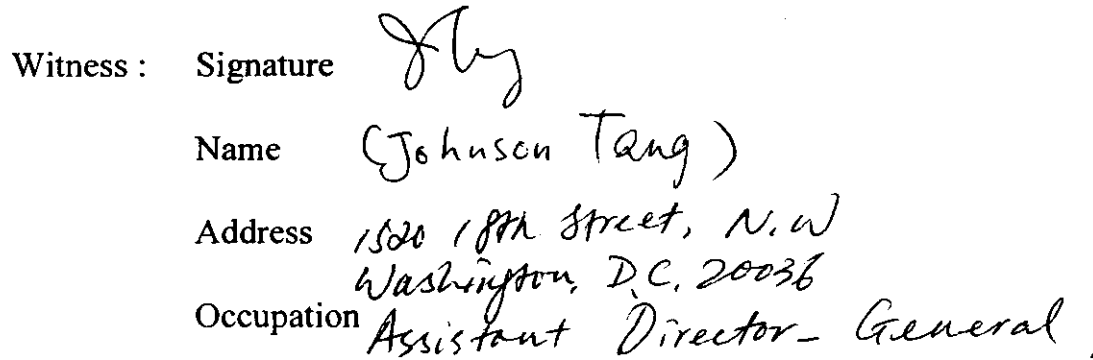 Witness : Signature
Name (Johnson Tang)
Address 1520 18th Street, N.W
Washington, D.C. 20036
Occupation Assistant Director-General